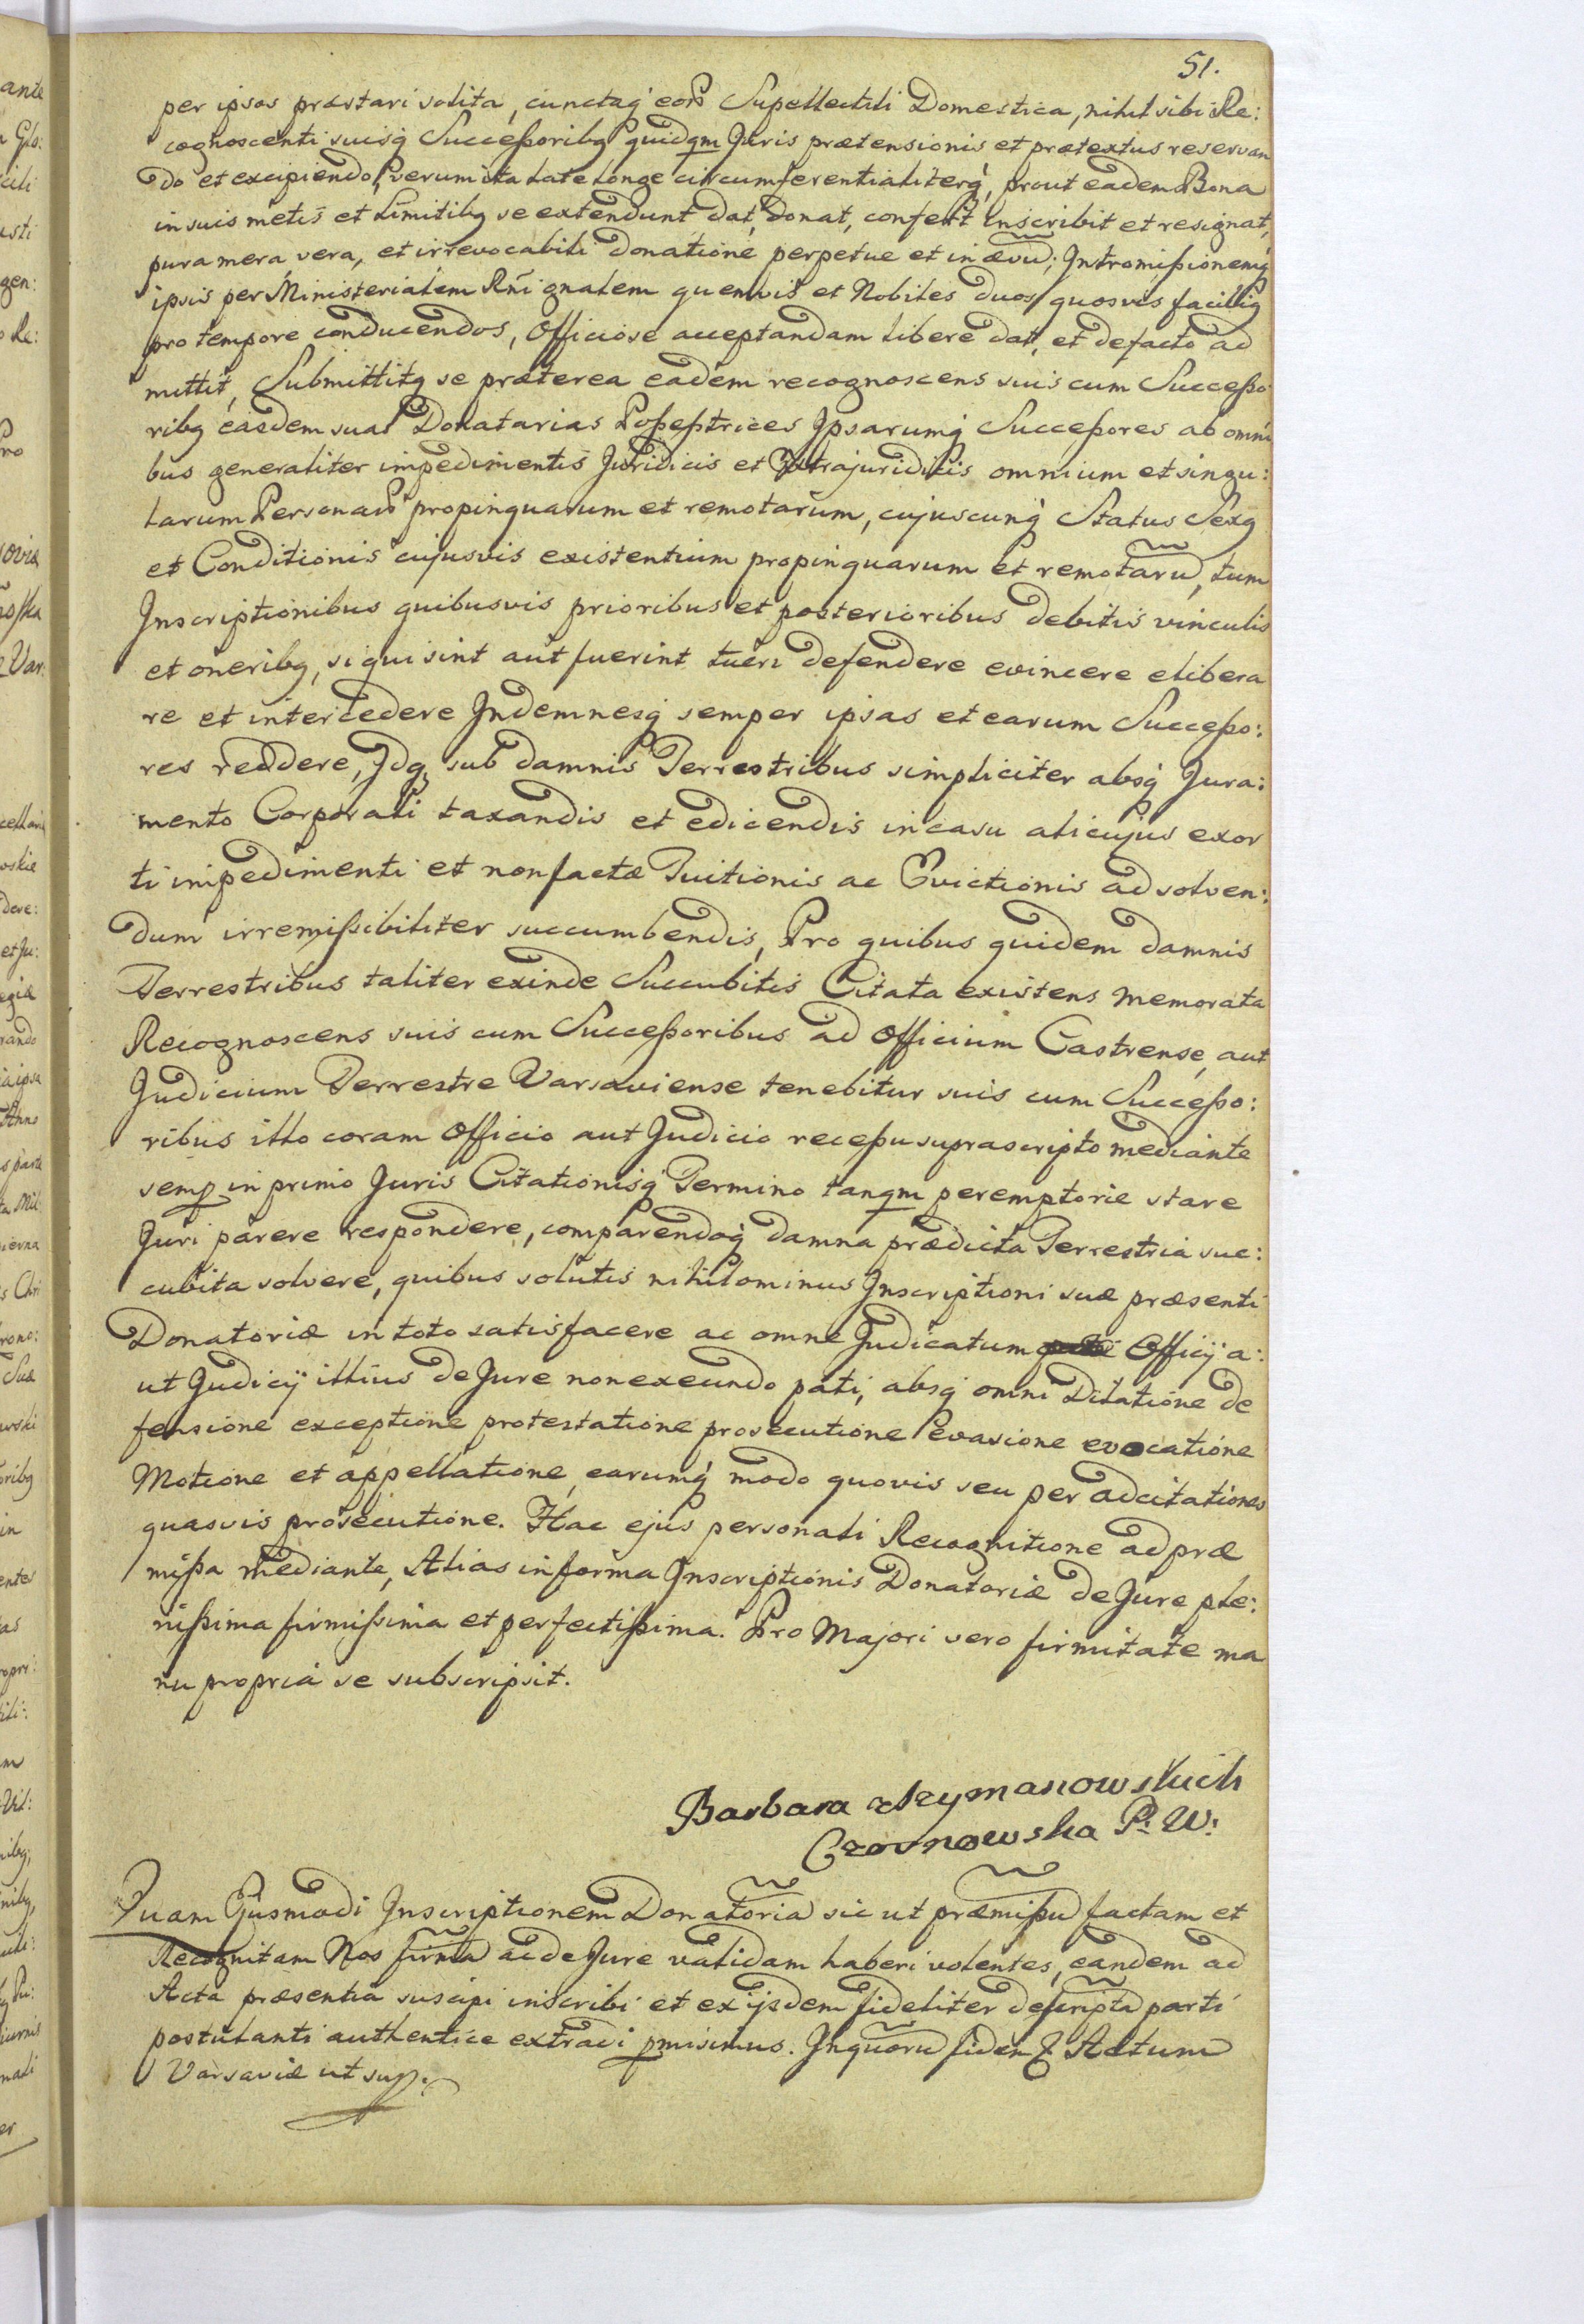 51.
per ipsos præstari solita, cunctaq́ eoꝝ Supellectili Domestica, nihil sibi Re:
cognoscenti suisq́ Succeßoribꝫ quidqm Juris prætensionis et prætextus reservan
do et excipiendo, verum ita late longe circumferentialiterq́, prout eadem Bona
in suis metis et Limitibꝫ se extendunt dat, donat, confert Inscribit et resignat,
pura mera vera, et irrevocabili donatione perpetue et in ævũ; Intromißionemq́
ipsis per Ministerialem Rñi gnalem quemvis et Nobiles duos quosvis facillig
pro tempore conducendos, Officiose acceptandam libere dat, et defacto ad
mittit, Submittitq se præterea eadem recognoscens suis cum Succeßo
ribꝫ easdem suas Donatarias Poßeßtrices Ipsarumq́ Succeßores ab omni
bus generaliter impedimentis Juridicis et Extrajuridicis omnium et singu:
larum Personarꝝ propinquarum et remotarum, cujuscunq́ Status Sexꝫ
et Conditionis cujusvis existentium propinquarum et remotarũ, tum
Inscriptionibus quibusvis prioribus et posterioribus debitis vinculis
et oneribꝫ, siqui sint aut fuerint tueri defendere evincere elibera
re et intercedere Indemnesq́ semper ipsas et earum Succeßo:
res reddere, Idq, sub damnis Terrestribus simpliciter absq́ Jura:
mento Corporali taxandis et edicendis in casu alicujus exor
ti impedimenti et non factæ Tuitionis ac Evictionis ad solven:
dum irremißibiliter succumbendis, Pro quibus quidem damnis
Terrestribus taliter exinde Succubitis Citata existens memorata
Recognoscens suis cum Succeßoribus ad Officium Castrense, aut
Judicium Terrestre Varsaviense tenebitur suis cum Succeßo:
ribus illo coram Officio aut Judicio receßu suprascripto mediante
semp in primo Juris Citationisq́ Termino tanqm peremptorie stare
Juri parere respondere, comparendoq́ damna prædicta Terrestria suc:
cubita solvere, quibus solutis nihilominus Inscriptioni suæ præsenti
Donatoriæ in toto satisfacere ac omne Judicatum Officij a:
ut Judicij illius de Jure non exeundo pati, absq́ omni Dilatione de
fensione exceptione protestatione prosecutione evasione evocatione
Motione et appellatione, earumq́ modo quovis seu per adcitationes
quasvis prosecutione. Hac ejus personali Recognitione ad præ
mißa mediante, Alias in forma Inscriptionis Donatoriæ de Jure ple:
nißima firmißima et perfectißima. Pro Majori vero firmitate ma
nu propria se subscripsit.
Barbara z Szymanowskich
Czosnowska P: W:
Quam Ejusmodi Inscriptionem Donatoriã sic ut præmißũ factam et
Recognitam Nos firmã ac de Jure validam haberi volentes, eandem ad
Acta præsentia suscipi inscribi et ex ijsdem fideliter descriptã parti
postulanti authentice extradi pmisimus. In quorũ fidem & Actum
Varsaviæ ut sup.